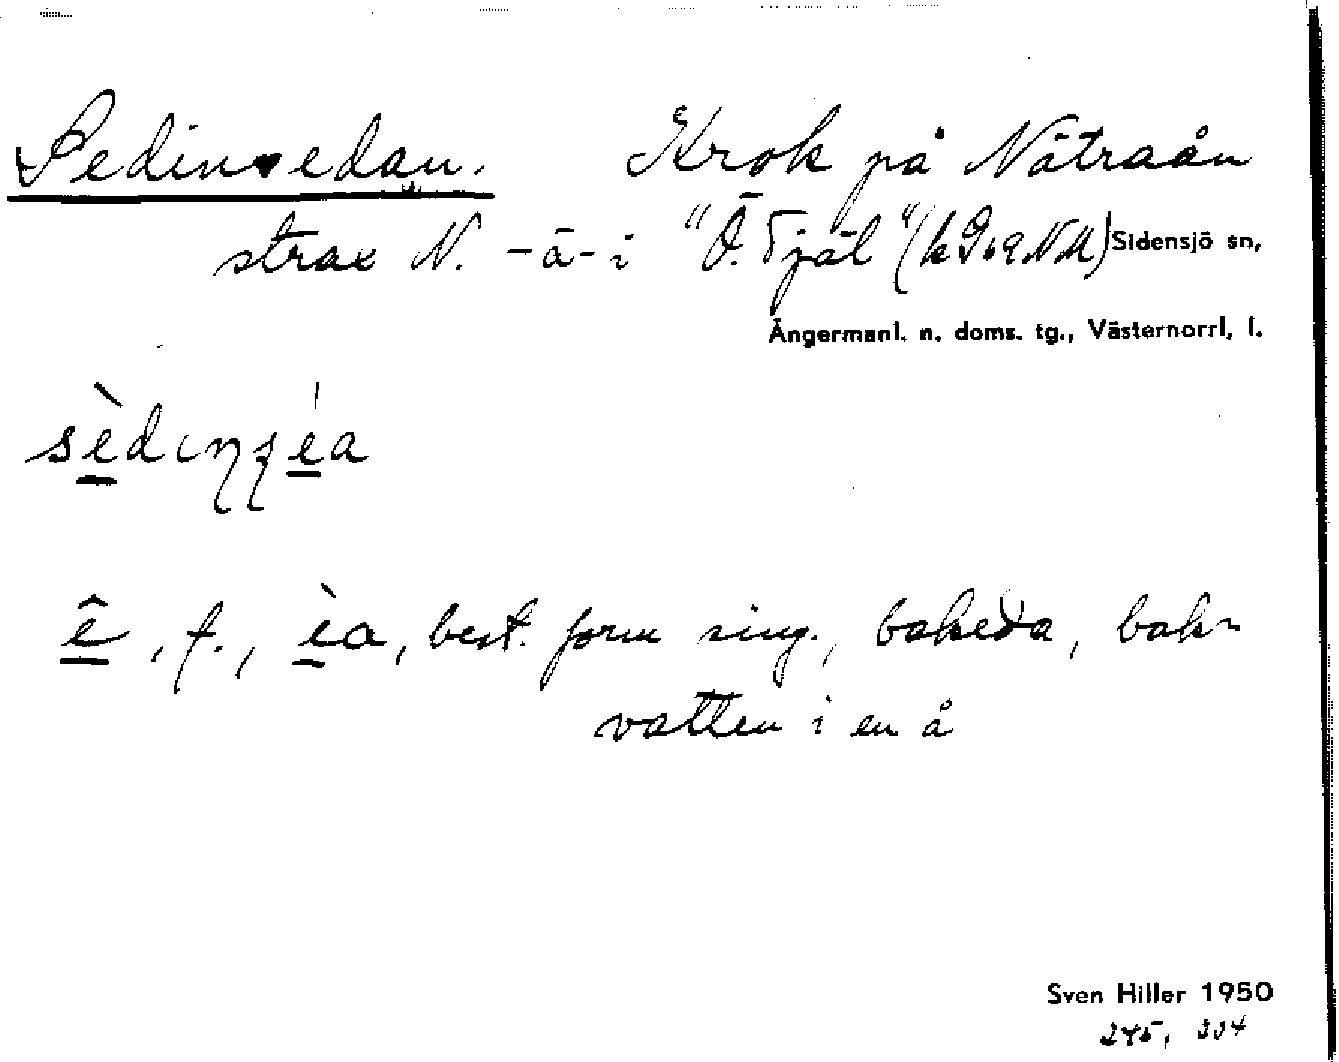 Sedinsedan. Krok på Nätraån
strax N. -ä- i "Ö. Tjäl" Sidensjö sn,
Ångermanl. n. doms. tg., Västernorrl. l.
sèdɩnséa
ê, f., èa, best. form sing., bakeda, bak-
vatten i en å
Sven Hiller 1950
245, 334